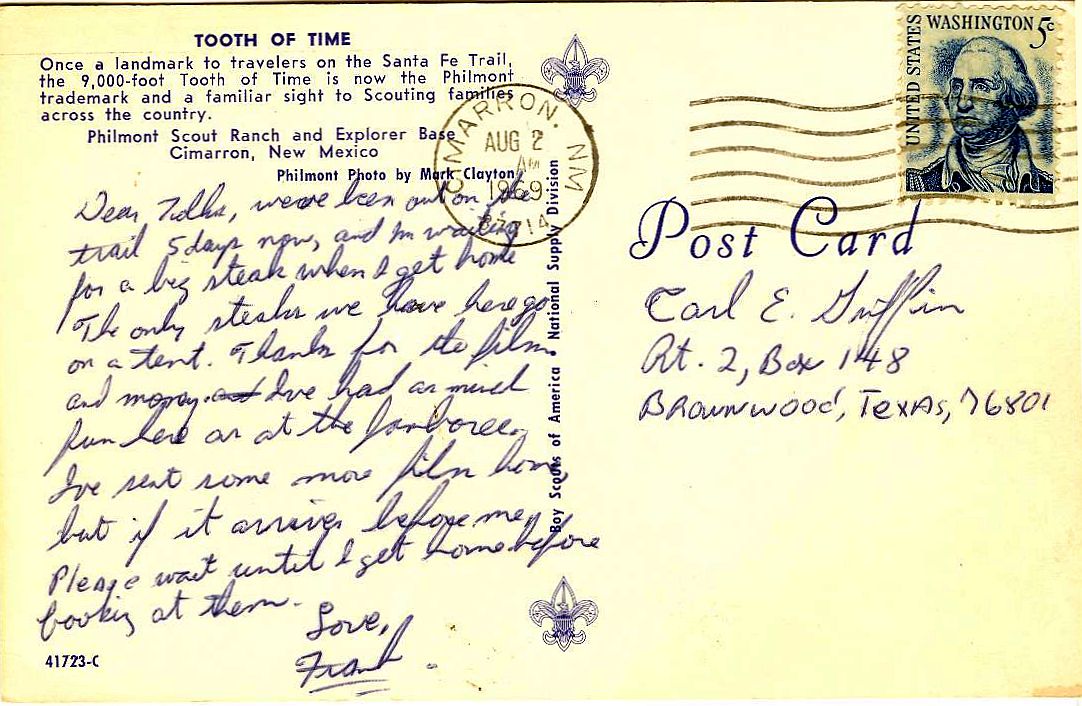 TOOTH OF TIME
Once a landmark to travelers on the Santa Fe Trail,
the 9,000-foot Tooth of Time is now the Philmont
trademark and a familiar sight to Scouting families
across the country.
Philmont Scout Ranch and Explorer Base
Cimarron, New Mexico
Philmont Photo by Mark Clayton
Dear Folks, we've been out on the
trail 5 days now, and I'm waiting
for a big steak when I get home
The only steaks we have here go
on a tent. Thanks for the film
and money. and I've had as much
fun here as at the Jamboree.
I've sent some more film home
but if it arrives before me,
Please wait until I get home before
looking at them.
Love,
Frank
41723-C
Boy Scouts of America National Supply Division
CIMARRON, NM
AUG 2
AM
1969
87714
UNITED STATES
WASHINGTON 5c
Post Card
Carl E. Griffin
Rt. 2, Box 148
Brownwood, Texas, 76801